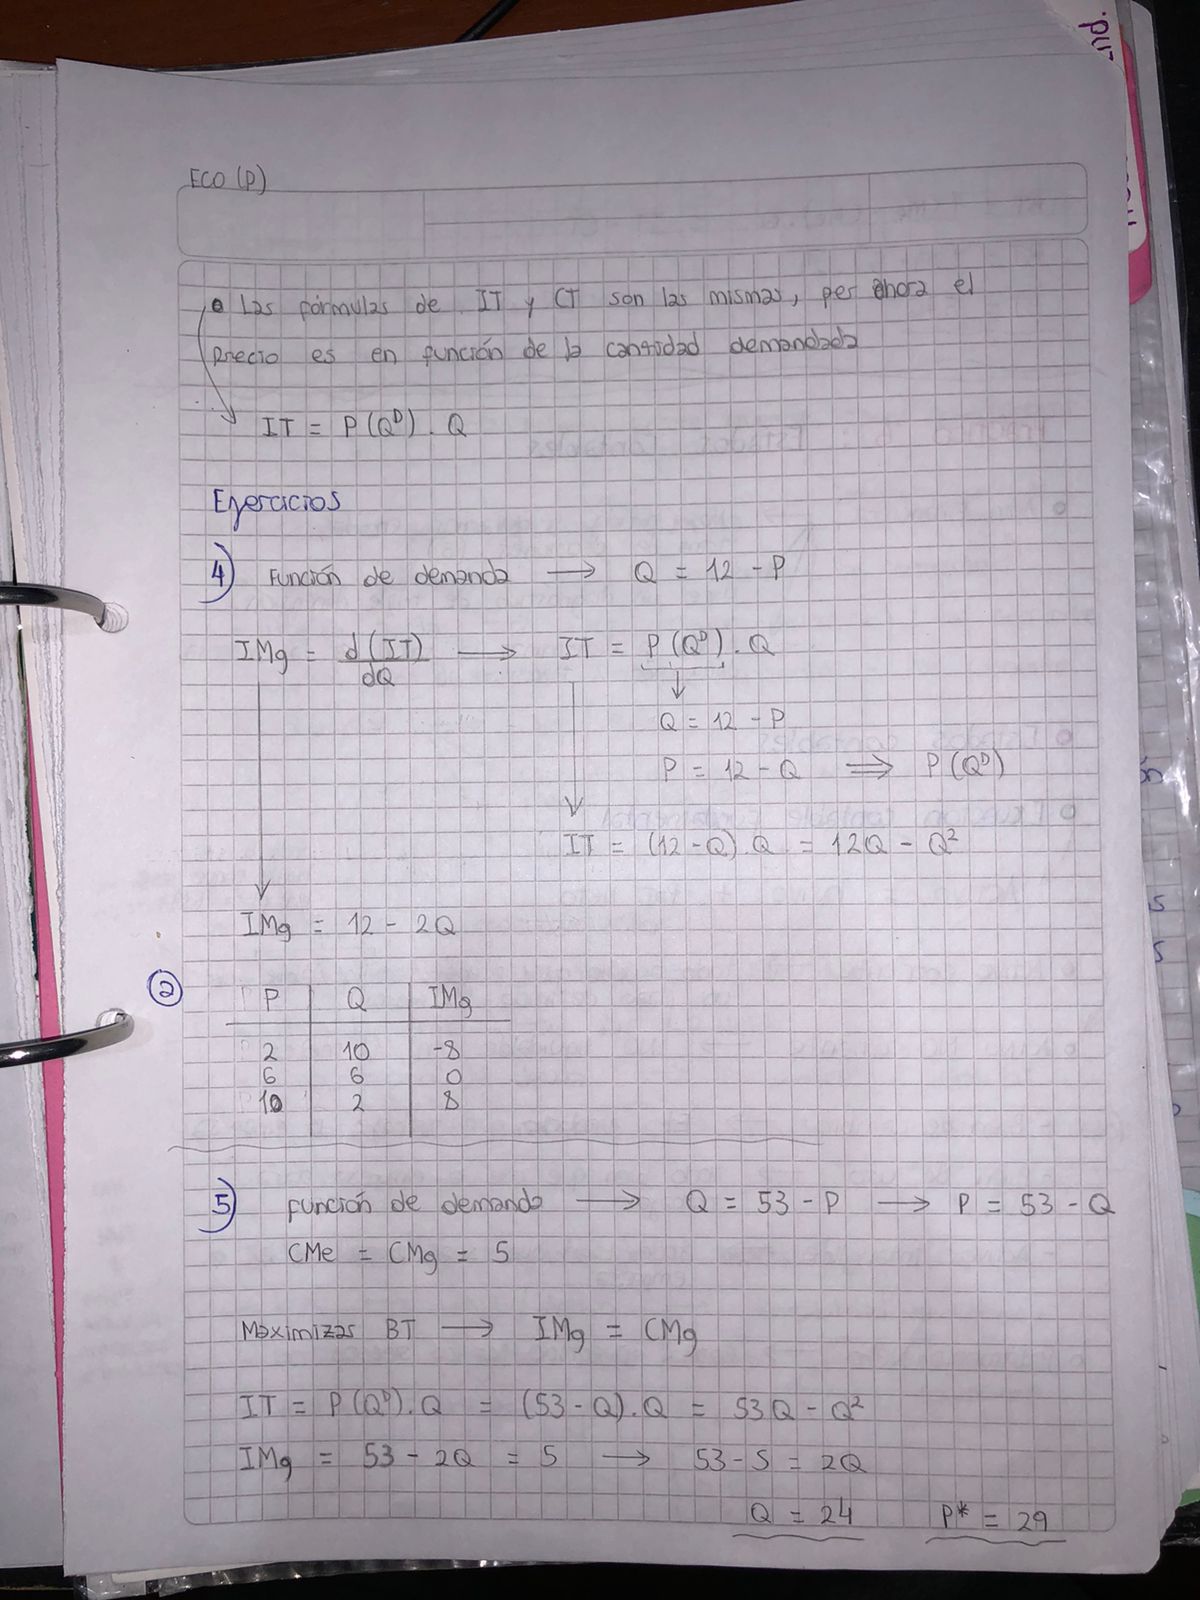 ECO (P)
• Las fórmulas de IT y CT son las mismas, per ahora el
precio es en función de la cantidad demandada
IT = P(Qᴰ) . Q
Ejercicios
4) Función de demanda → Q = 12 - P
IMg = d(IT)/dQ → IT = P(Qᴰ) . Q
Q = 12 - P
P = 12 - Q ⇒ P(Qᴰ)
IT = (12 - Q) . Q = 12Q - Q²
IMg = 12 - 2Q
② P | Q | IMg
2 | 10 | -8
6 | 6 | 0
10 | 2 | 8
5) Función de demanda → Q = 53 - P → P = 53 - Q
CMe = CMg = 5
Maximizar BT → IMg = CMg
IT = P(Qᴰ) . Q = (53 - Q) . Q = 53Q - Q²
IMg = 53 - 2Q = 5 → 53 - 5 = 2Q
Q = 24 P* = 29